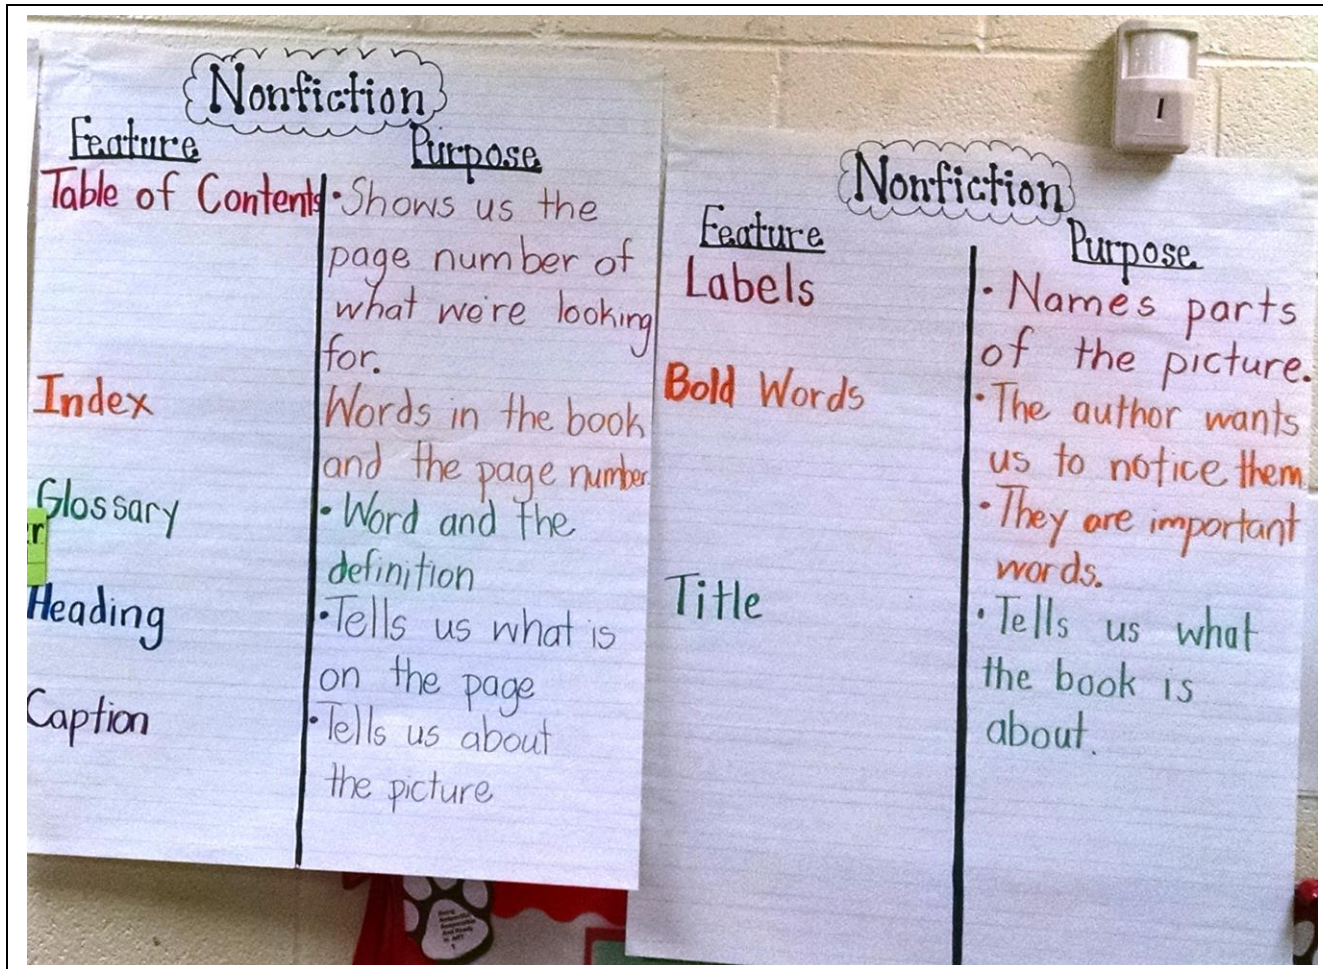 Nonfiction
Feature Purpose
Table of Contents •Shows us the
page number of
what we're looking
for.
Index Words in the book
and the page number.
Glossary •Word and the
definition
Heading •Tells us what is
on the page
Caption •Tells us about
the picture
Nonfiction
Feature Purpose
Labels •Names parts
of the picture.
Bold Words •The author wants
us to notice them
•They are important
words.
Title •Tells us what
the book is
about.